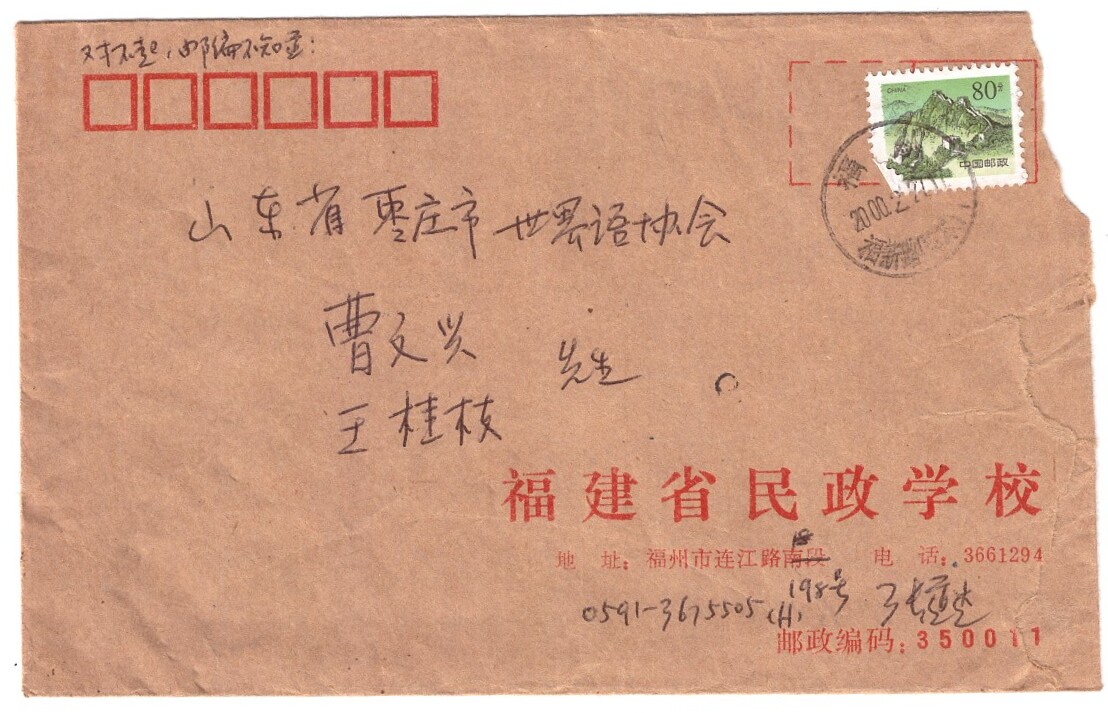 对不起，邮编不知道：
CHINA 80分
中国邮政
福
2000.2
山东省枣庄市世界语协会
曹文兴 先生
王桂枝
福建省民政学校
地 址：福州市连江路南段 电 话：3661294
198号
0591-3675505(H)
邮政编码：350011